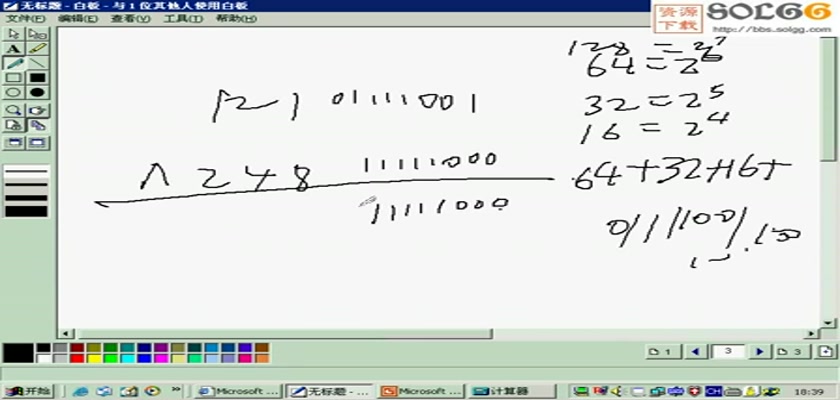 无标题 - 白板 - 与 1 位其他人使用白板
文件(F) 编辑(E) 查看(V) 工具(T) 帮助(H)
资源下载
SOLGG
http://bbs.solgg.com
A
121 01111001
∧ 248 11111000
11111000
128 = 2^7
64 = 2^6
32 = 2^5
16 = 2^4
64+32+16+
1
3
3
开始
Microsoft ...
无标题 - ...
Microsoft ...
计算器
CH
18:39